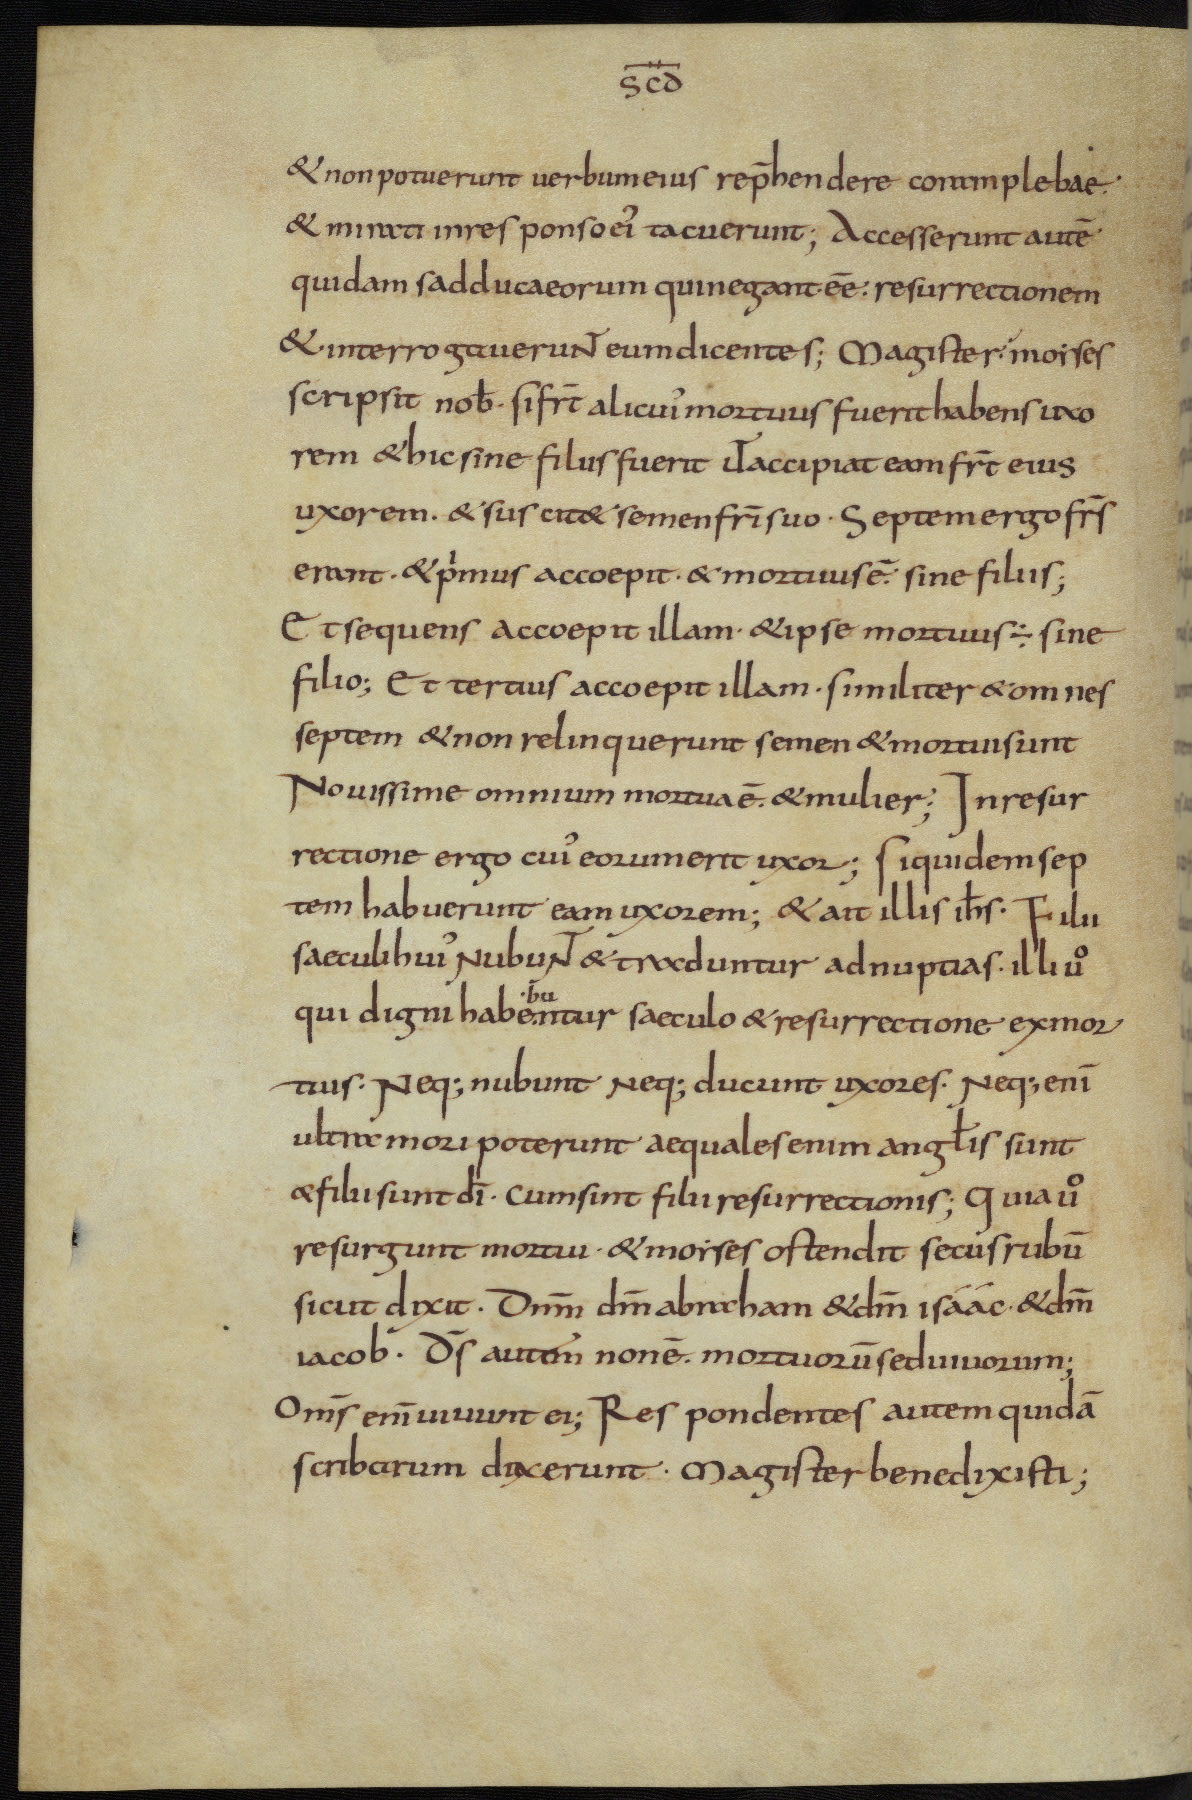 SC̅D̅
& non potuerunt uerbum eius rep̄hendere coram plebae·
& mirati in responso ei᾿ tacuerunt; Accesserunt autē
quidam sadducaeorum qui negant eē· resurrectionem
& interrogauerun̄t eum dicentes; Magister· moises
scripsit nob̄· si fr̄t alicui᾿ mortuus fuerit habens uxo
rem & hic sine filiis fuerit ut̄ accipiat eam fr̄t eius
uxorem· & suscit& semen fr̄i suo· Septem ergo fr̄s
erant· & p̍mus accoepit· & mortuus ē· sine filiis;
Et sequens accoepit illam· & ipse mortuus ÷ sine
filio; Et tertius accoepit illam· similiter & omnes
septem & non relinquerunt semen & mortui sunt
Nouissime omnium mortua ē· & mulier; In resur
rectione ergo cui᾿ eorum erit uxor; Siquidem sep
tem habuerunt eam uxorem; & ait illis ih̄s· Filii
saeculi hui᾿ nubun̄t & traduntur ad nuptias· illi uͦ
qui digni habe·bu·ntur saeculo & resurrectione ex mor
tuis· Neq; nubunt neq; ducunt uxores· Neq; eni̅
ultra mori poterunt aequales enim angl̄is sunt
& filii sunt dī· cum sint filii resurrectionis; Quia uͦ
resurgunt mortui· & moises ostendit secus rubū
sicut dixit· Dn̄m dm̄ abraham & dm̄ isáác· & dm̄
iacob· Dš autem non ē· mortuorū sed uiuorum;
Omš eni̅ uiuunt ei; Respondentes autem quidā
scribarum dixerunt· Magister bene dixisti;